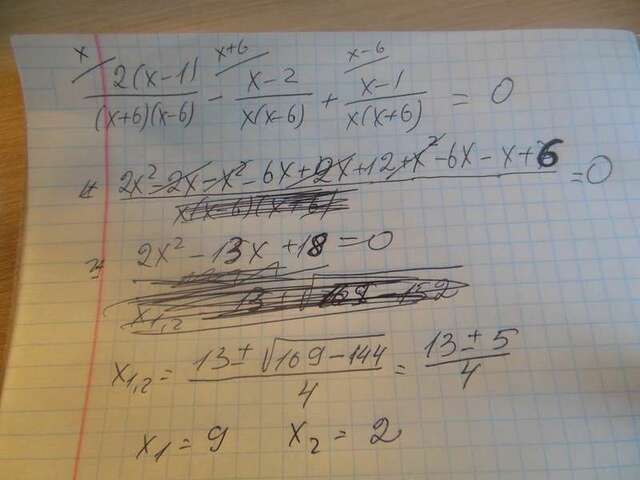 x x+6 x-6
2(x-1)/((x+6)(x-6)) - (x-2)/(x(x-6)) + (x-1)/(x(x+6)) = 0
(2x²-2x-x²-6x+2x+12+x²-6x-x+6)/(x(x-6)(x+6)) = 0
2x² - 13x + 18 = 0
x₁,₂
x₁,₂ = (13 ± √(169-144))/4 = (13 ± 5)/4
x₁ = 9 x₂ = 2